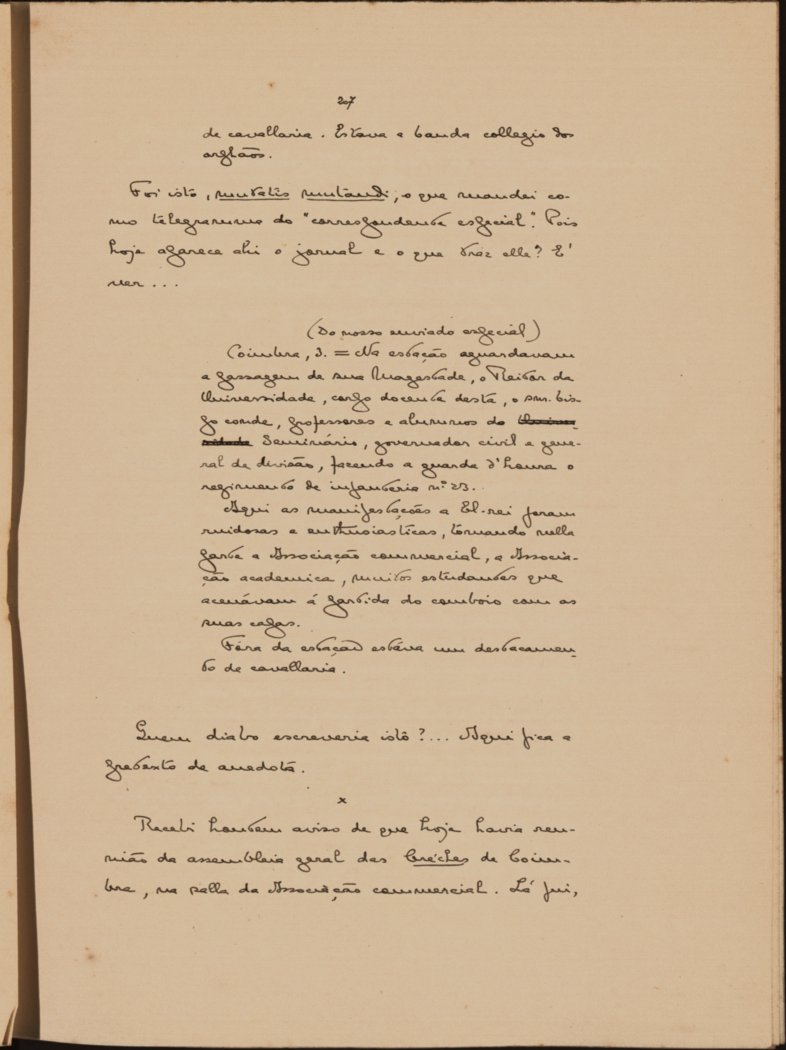 207
de cavallaria. Estava a banda collegio dos
orphãos.
Foi istò, mutatis mutandi, o que mandei co-
mo telegramma do "correspondente especial". Pois
hoje aparece ahi o jornal e o que tráz elle? E'
ver...
(Do nosso enviado especial)
Coimbra, 3. = Na estação aguardavam
a passagem de sua Magestade, o Reitor da
Universidade, corpo docente desta, o snr. bis-
po conde, professores e alumnos do Univer-
sidade Seminário, governador civil e gene-
ral de divisão, fazendo a guarda d'honra o
regimento de infanteria n.º 23.
Aqui as manifestações a El-rei foram
ruidosas e enthusiasticas, tomando nella
parte a Associação commercial, a Associa-
ção academica, muitos estudantes que
acenávam á partida do comboio com as
suas capas.
Fóra da estação estáva um destacamen-
to de cavallaria.
Quem diabo escreveria istò?... Aqui fica a
pretexto de anedota.
x
Recebi hontem aviso de que hoje havia reu-
nião da assembleia geral das Crèches de Coim-
bra, na salla da Associação commercial. Lá fui,